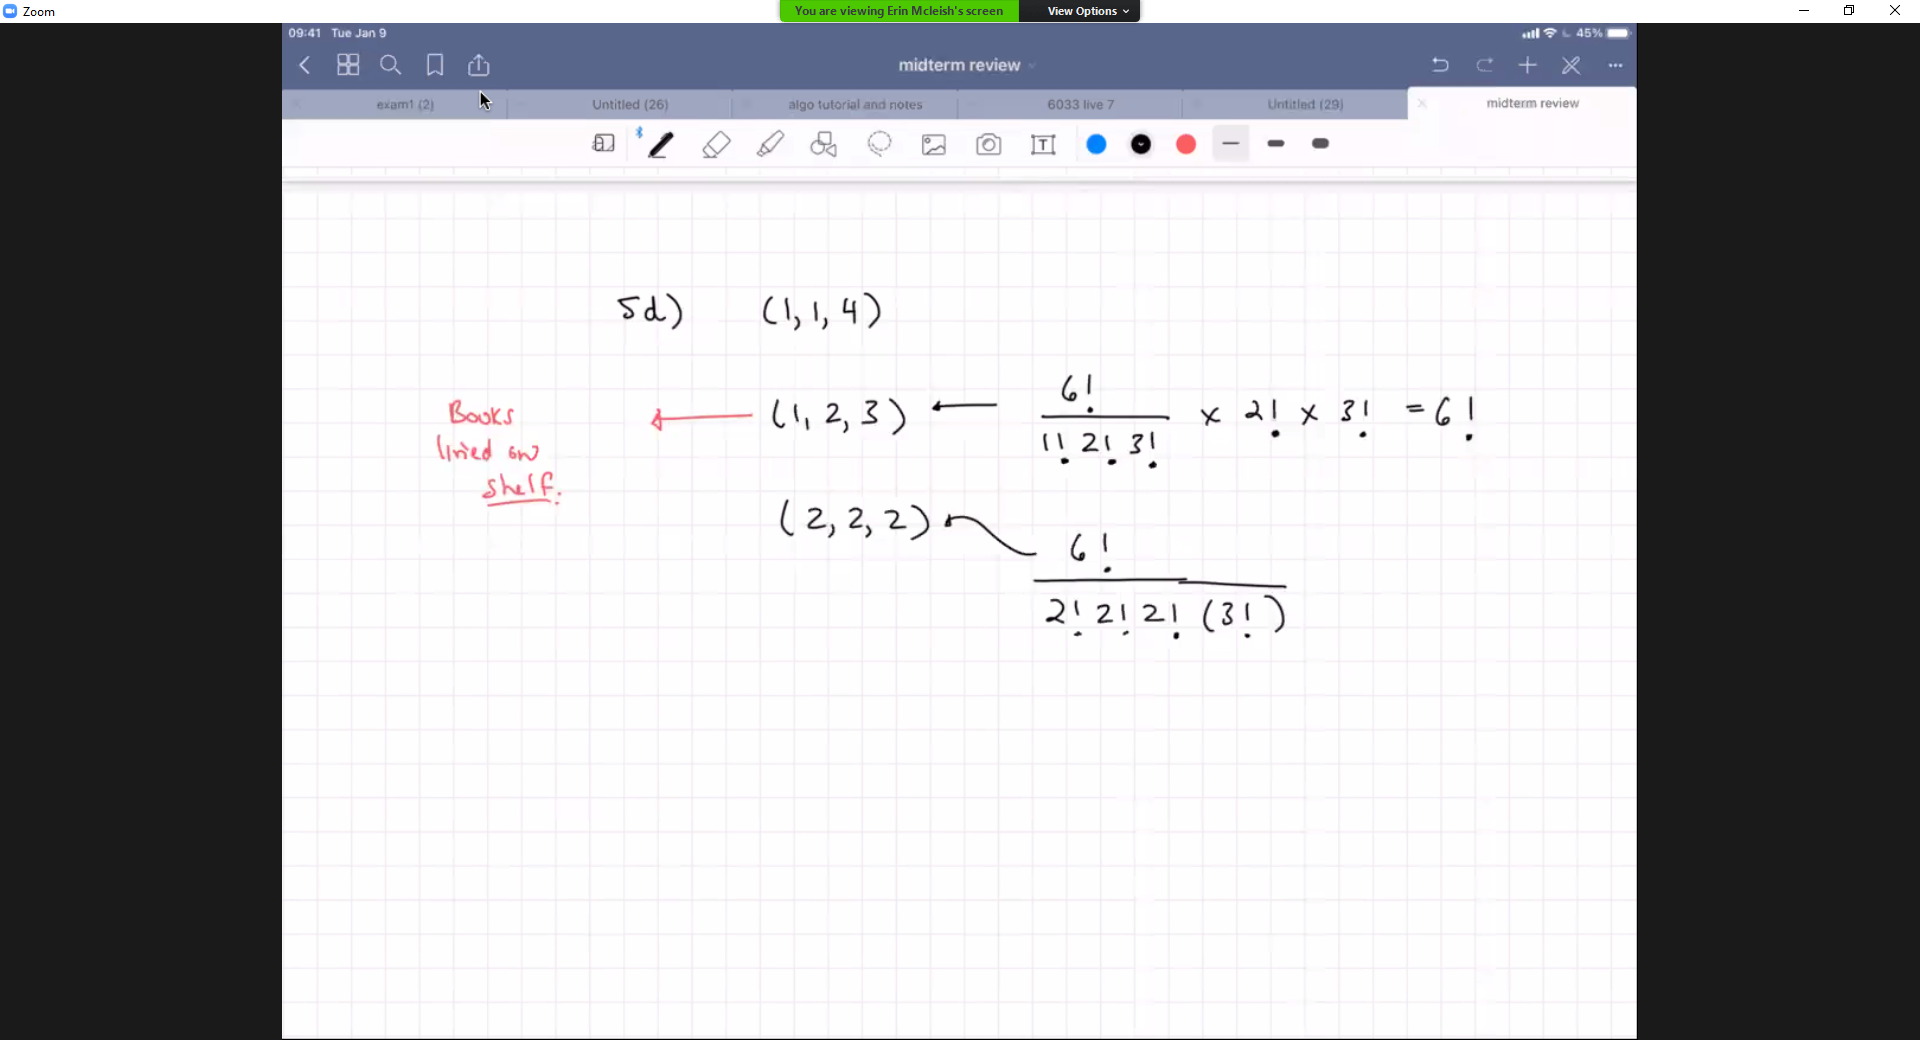 Zoom
You are viewing Erin Mcleish's screen View Options
09:41 Tue Jan 9
45%
midterm review
exam1 (2) Untitled (26) algo tutorial and notes 6033 live 7 Untitled (29) midterm review
T
5d) (1, 1, 4)
Books
lined on
shelf.
(1, 2, 3)
6!
1! 2! 3!
x 2! x 3! = 6!
(2, 2, 2)
6!
2! 2! 2! (3!)